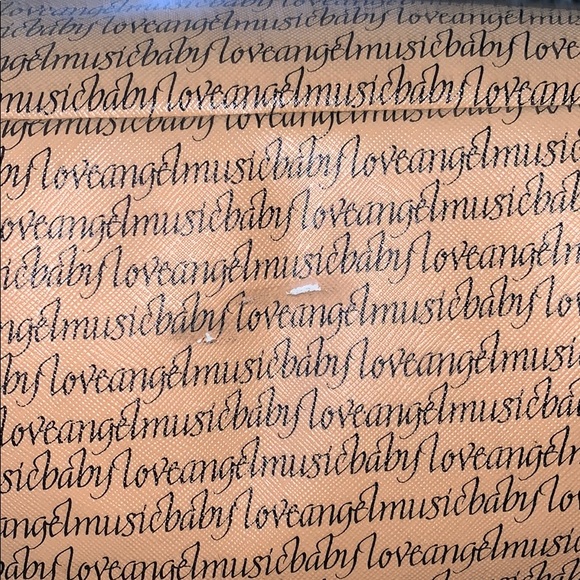 sicbaby loveangelmusicbaby loveangelmusi
ngelmusicbaby loveangelmusicbaby love
musicbaby loveangelmusicbaby loveang
ngelmusicbaby loveangelmusicbaby love
by loveangelmusicbaby loveangelmusic
oveangelmusicbaby loveangelmusicbab
icbaby loveangelmusicbaby loveangelm
ngelmusicbaby loveangelmusicbaby lov
by loveangelmusicbaby loveangelmusi
loveangelmusicbaby loveangelmusicba
sicbaby loveangelmusicbaby loveangelm
angelmusicbaby loveangelmusicbaby lo
baby loveangelmusicbaby loveangelmusi